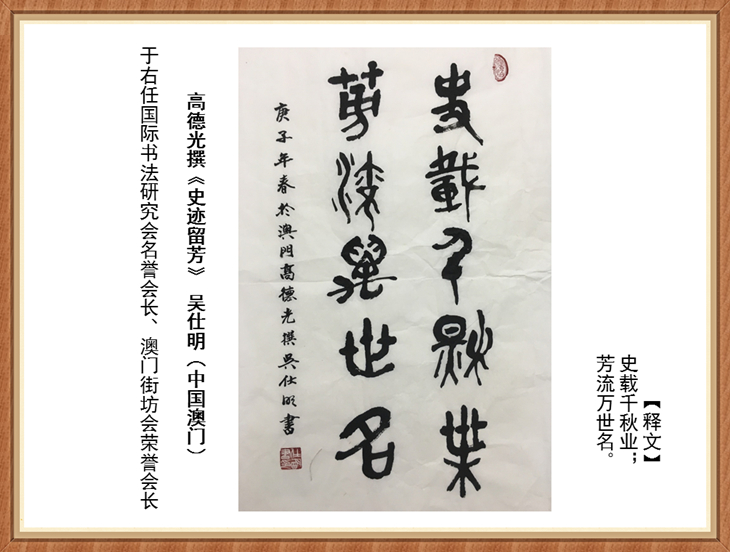 【释文】
史载千秋业；
芳流万世名。
史載千秋業
芳流萬世名
庚子年春於澳門高德光撰吳仕明書
高德光撰《史迹留芳》 吴仕明（中国澳门）
于右任国际书法研究会名誉会长、澳门街坊会荣誉会长